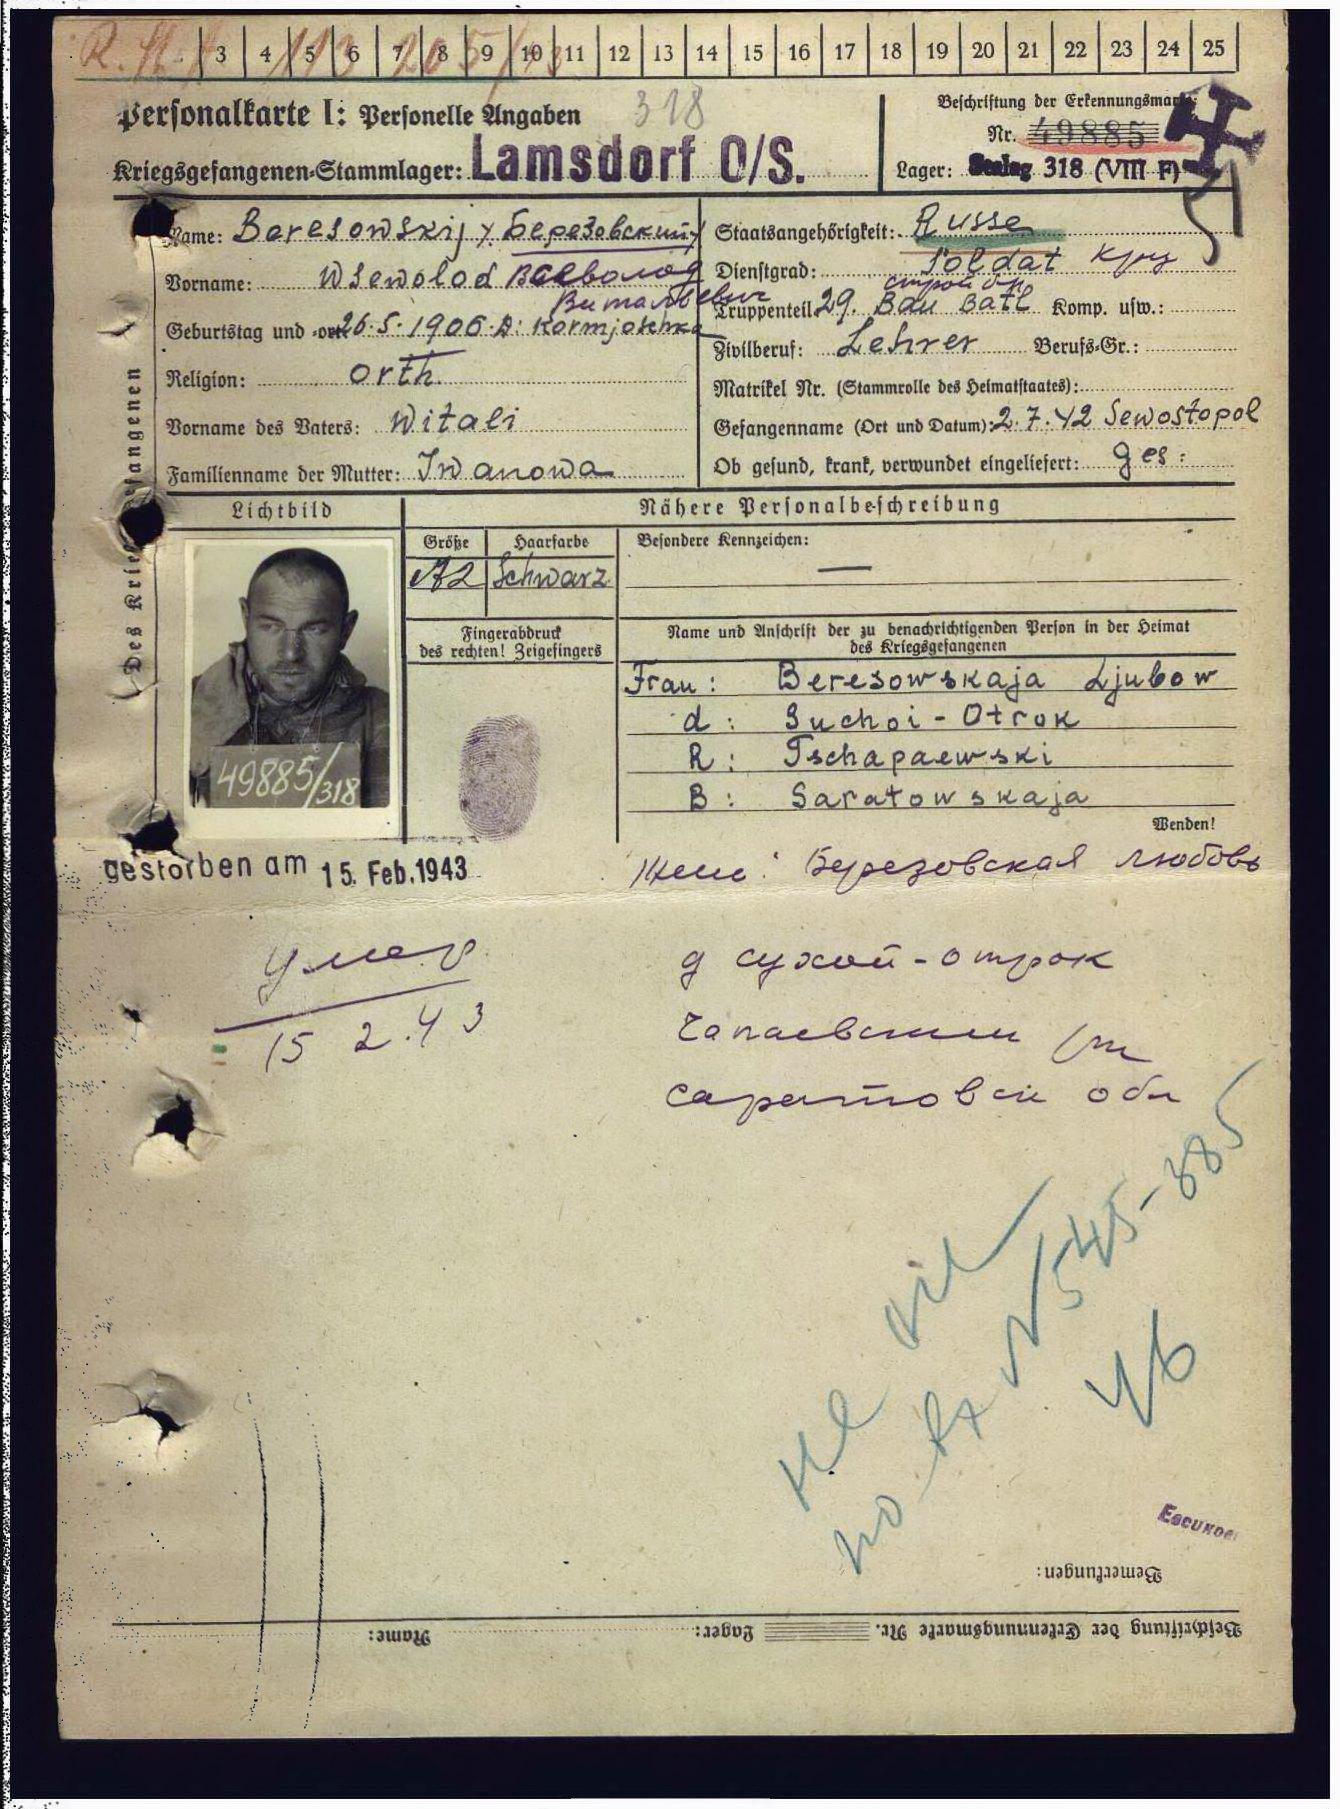 3 4 5 6 7 8 9 10 11 12 13 14 15 16 17 18 19 20 21 22 23 24 25
Personalkarte I: Personelle Angaben
318
Kriegsgefangenen-Stammlager: Lamsdorf O/S.
Beschriftung der Erkennungsmarke
Nr. 49885
Lager: Stalag 318 (VIII F)
Des Kriegsgefangenen
Name: Beresowskij Березовский
Vorname: Wsewolod Всеволод
Витальевич
Geburtstag und -ort: 26.5.1906. D: Kormjoschka
Religion: Orth.
Vorname des Vaters: Witali
Familienname der Mutter: Iwanowa
Staatsangehörigkeit: Russe
Dienstgrad: Soldat
Truppenteil: 29. Bau Batl Komp. usw.:
Zivilberuf: Lehrer Berufs-Gr.:
Matrikel Nr. (Stammrolle des Heimatstaates):
Gefangenname (Ort und Datum): 2.7.42 Sewostopol
Ob gesund, krank, verwundet eingeliefert: ges:
Lichtbild
49885/318
Nähere Personalbeschreibung
Größe Haarfarbe
172 Schwarz
Besondere Kennzeichen: —
Fingerabdruck
des rechten! Zeigefingers
Name und Anschrift der zu benachrichtigenden Person in der Heimat
des Kriegsgefangenen
Frau: Beresowskaja Ljubow
d: Suchoi-Otrok
R: Tschapaewski
B: Saratowskaja
Wenden!
gestorben am 15. Feb. 1943
умер
15 2.43
Березовская любовь
д сухой-отрок
Чапаевский
Саратовск обл
Bemerkungen:
Beschriftung der Erkennungsmarke Nr. Lager: Name: